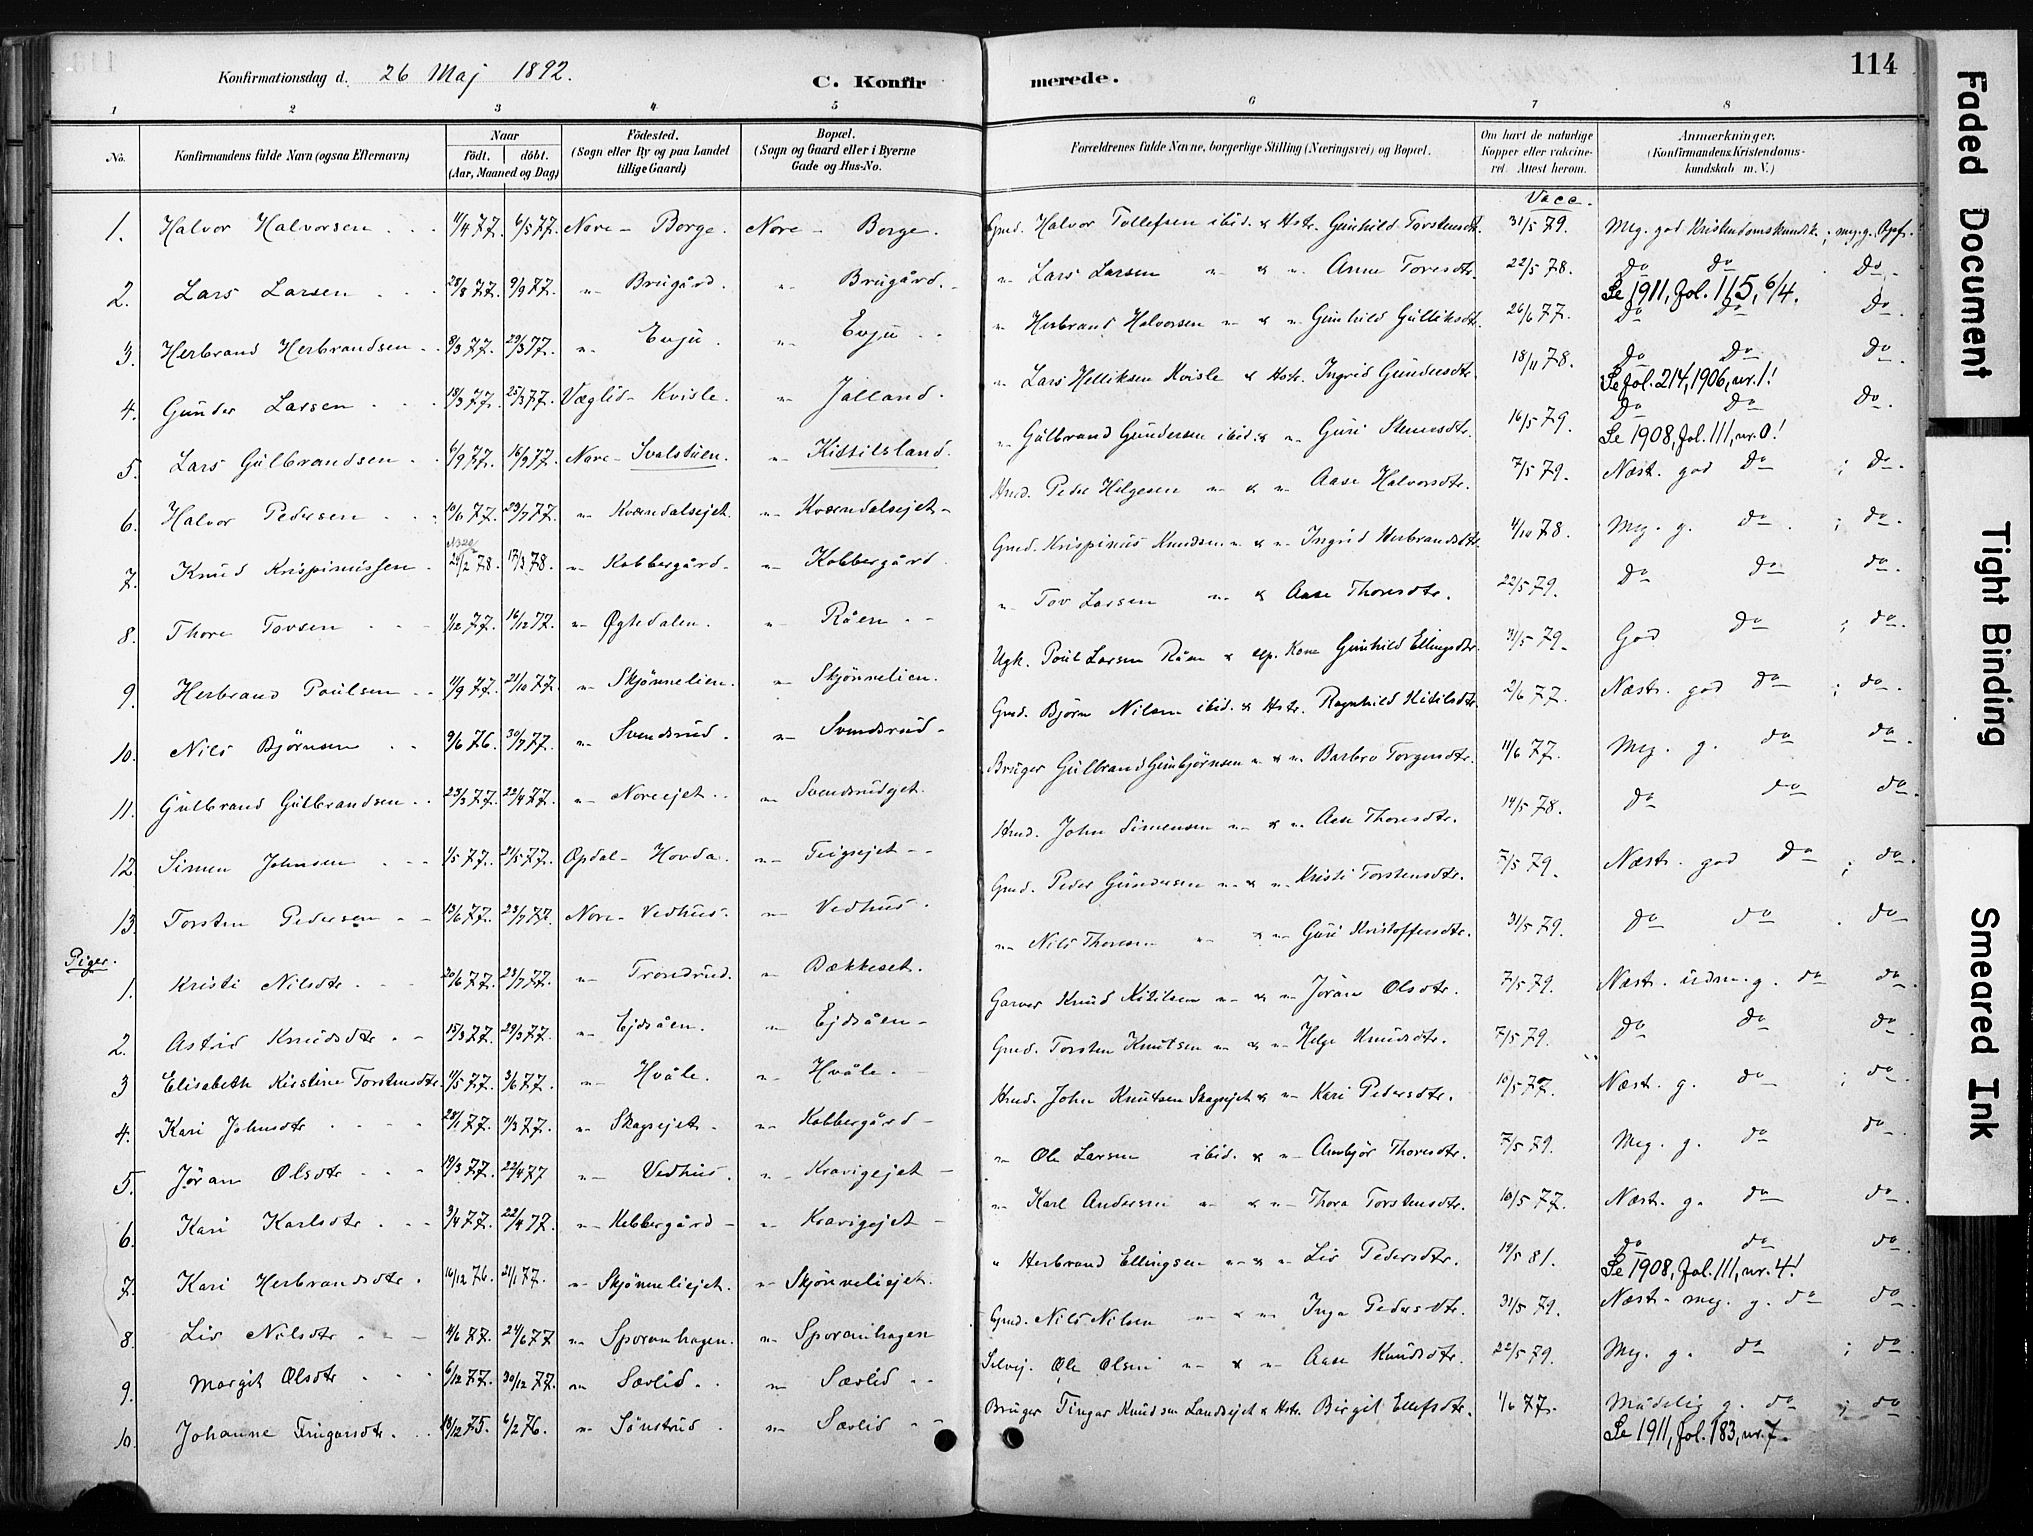 Konfirmationsdag d. 26 Maj 1892. C. Konfirmerede. 114
1 2 3 4 5 6 7 8
No. Konfirmandens fulde Navn (ogsaa Efternavn) Naar født. døbt. (Aar, Maaned og Dag) Födested. (Sogn eller By og paa Landet tillige Gaard) Bopæl. (Sogn og Gaard eller i Byerne Gade og Hus-No. Forældrenes fulde Navne, borgerlige Stilling (Næringsvei) og Bopæl. Om havt de naturlige Kopper eller vakcineret. Attest herom. Anmærkninger. (Konfirmandens Kristendomskundskab m. V.)
Vacc.
1. Halvor Halvorsen 11/4 77. 6/5 77. Nore - Borge. Nore - Borge. Gmd. Halvor Tollefsen ibid. & Hstr. Gunhild Torstensdtr. 31/5 79. Meg. god Kristendomskundsk.; meg. g. Opf.
2. Lars Larsen 28/8 77. 9/9 77. " Brugård. " Brugård. " Lars Larsen " & " Anne Toresdtr. 22/5 78. do do do.
Se 1911, fol. 115, 6/4.
3. Herbrand Herbrandsen 8/3 77. 29/3 77. " Evju. " Evju. " Herbrand Halvorsen " & " Gunhild Gulliksdtr. 26/6 77. do do do.
4. Gunder Larsen 18/3 77. 25/3 77. Væglid - Kvisle. " Jalland. " Lars Helliksen Kvisle & Hstr. Ingrid Gundersdtr. 18/11 78. do do do.
Se fol. 214, 1906, nr. 1!
5. Lars Gulbrandsen 6/9 77. 16/9 77. Nore - Svalstuen. " Kittilsland. " Gulbrand Gundersen ibid. & " Guri Stenersdtr. 16/5 79. do do do.
Se 1908, fol. 111, nr. 0!
6. Halvor Pedersen 10/6 77. 29/7 77. " Kværndalsejet. " Kværndalsejet - Hmd. Peder Helgesen " & " Aase Halvorsdtr. 7/5 79. Næst. god do; do.
7. Knud Krispinussen 17/3 78. " Kobbergård. " Kobbergård. Gmd. Krispinus Knudsen " & " Ingrid Herbrandsdtr. 4/10 78. Meg. g. do; do.
8. Thore Tovsen 1/12 77. 16/12 77. " Øgtedalen. " Råen. " Tov Larsen " & Aase Thoresdtr. 22/5 79. do do do.
9. Herbrand Poulsen 11/9 77. 21/10 77. " Skjönnelien. " Skjönnelien. Ugk. Poul Larsen Råen & Kone Gunhild Ellingsdtr. 31/5 79. God do; do.
10. Nils Björnsen 9/6 76. 30/7 77. " Svendsrud. " Svendsrud. Gmd. Björn Nilsen ibid. & Hstr. Ragnhild Kitilsdtr. 2/6 77. Næst. god do; do.
11. Gulbrand Gulbrandsen 23/3 77. 22/4 77. " Noreejet. " Svendsrudejet. Bruger Gulbrand Gunbjörnsen " & " Barbro Torgersdtr. 11/6 77. Meg. g. do do.
12. Simen Johnsen 1/5 77. 21/5 77. Opdal - Hovda. " Teigsejet. Hmd. John Simensen " & " Aase Thoresdtr. 14/5 78. do do do.
13. Torsten Pedersen 13/6 77. 23/7 77. Nore - Vedhus. " Vedhus. Gmd. Peder Gundersen " & " Kristi Torstensdtr. 7/5 79. Næst. god do; do.
Piger.
1. Kristi Nilsdtr. 20/6 77. 23/7 77. " Trondrud. " Bækkeset. " Nils Thoresen " & " Guri Kristoffersdtr. 31/5 79. do do do
2. Astrid Knudsdtr. 15/3 77. 29/3 77. " Ejdsåen. " Ejdsåen - Garver Knud Kitilsen " & " Jöran Olsdtr. 7/5 79. Næst. udm. g. do do.
3 Elisabeth Kirstine Torstensdtr. 4/5 77. 3/6 77. " Hvåle. " Hvåle. Gmd. Torsten Knutsen " & " Helge Knudsdtr. 7/5 79. do do do.
4. Kari Johnsdtr 28/1 77. 11/3 77. " Skagsejet. " Kobbergård - Hmd. John Knutsen Skagsejet & " Kari Pedersdtr. 10/5 77. Næst. g. do; do.
5. Jöran Olsdtr 19/3 77. 22/4 77 " Vedhus. " Kravigejet - " Ole Larsen ibid. & " Anbjör Thoresdtr. 7/5 79. Meg. g. do do.
6. Kari Karlsdtr 3/4 77. 22/4 77. " Kobbergård - " Kravigejet - " Karl Andersen " & " Thora Torstensdtr. 10/5 77. Næst. g. do do.
7. Kari Herbrandsdtr. 16/12 76. 21/1 77. " Skjönneliejet. " Skjönneliejet. " Herbrand Ellingsen " & " Liv Pedersdtr. 19/5 81. do do do.
Se 1908, fol. 111, nr. 4!
8. Liv Nilsdtr 4/6 77. 24/6 77 " Sporanhagen. " Sporanhagen Gmd. Nils Nilsen " & " Inga Pedersdtr. 31/5 79. Næst. meg. g. do do.
9. Margit Olsdtr 6/12 77. 30/12 77. " Sævlid. " Sævlid Selvej. Ole Olsen " & " Aase Knudsdtr. 22/5 79. Meg. g. do; do
10. Johanne Fingarsdtr. 13/12 75. 6/2 76. " Sönstrud. " Sævlid Bruger Fingar Knudsen Landsejet & Hstr. Birgit Ellefsdtr. 1/6 77. Mådelig g. do; do
Se 1911, fol. 183, nr. 7.
Faded Document
Tight Binding
Smeared Ink